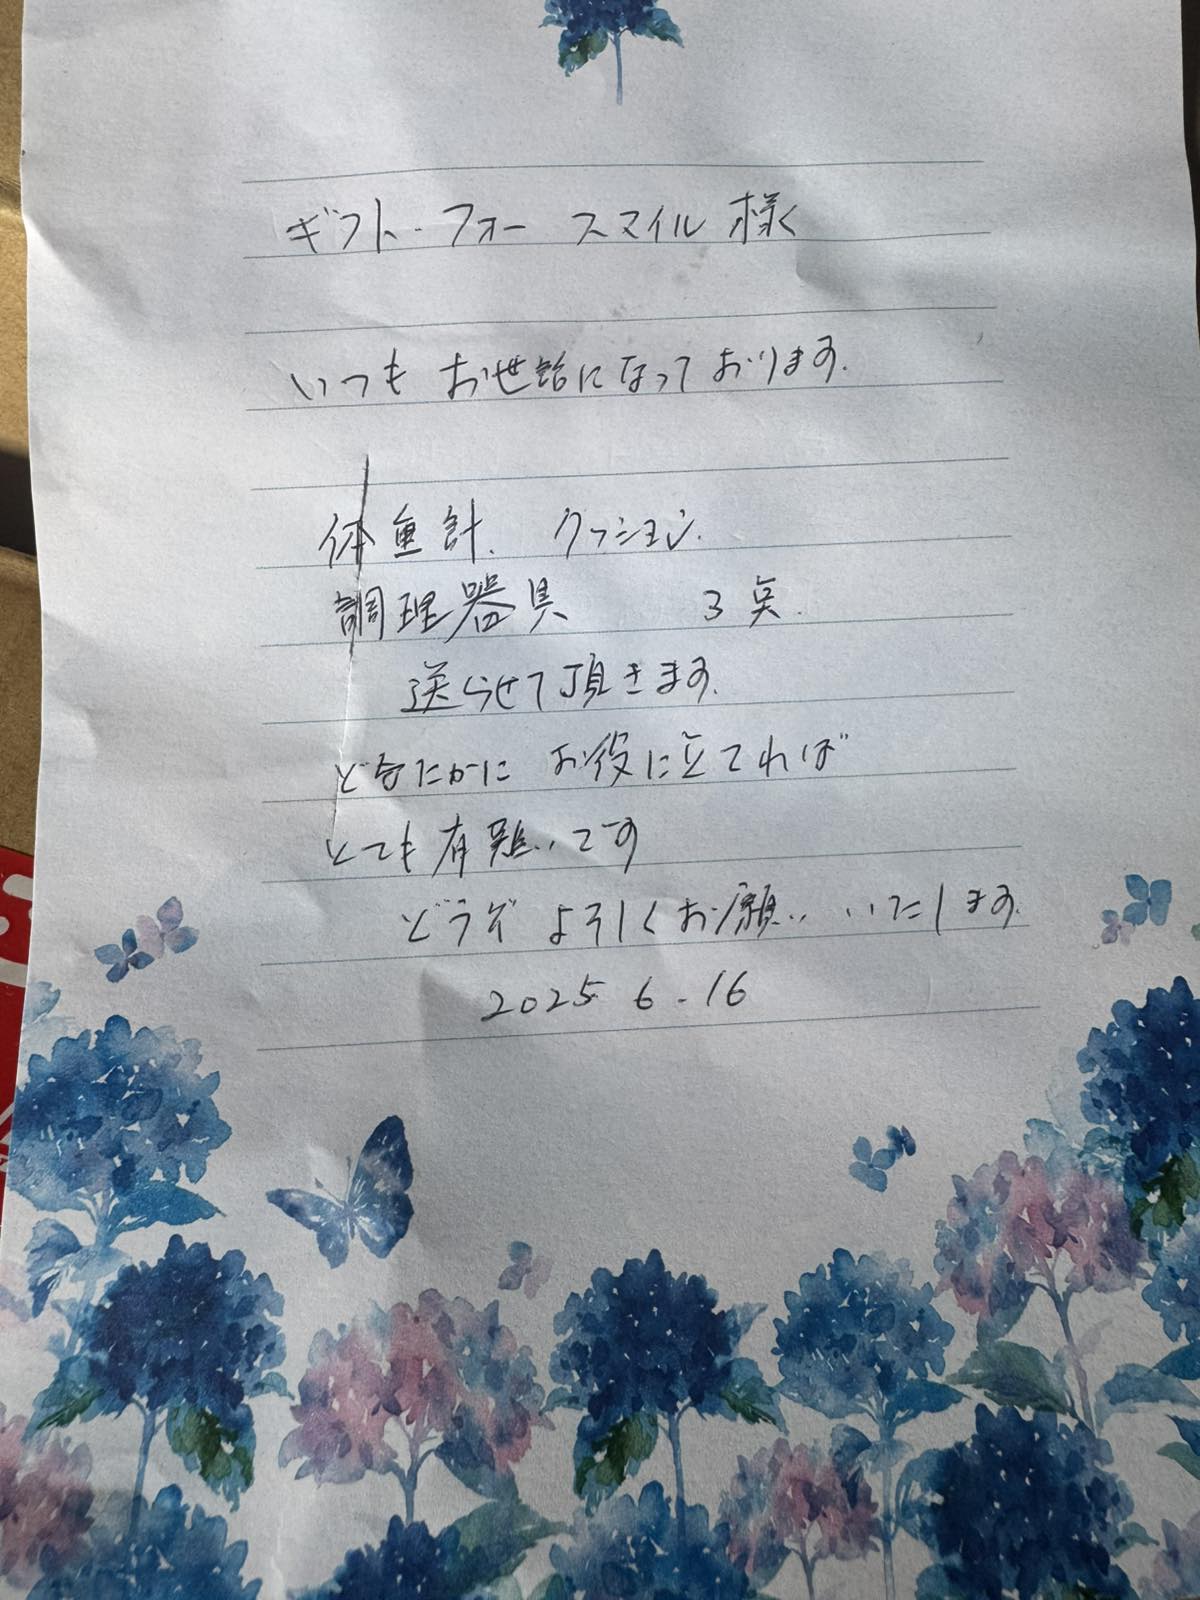 ギフト・フォー スマイル 様
いつも お世話になっております.
体重計. クッション.
調理器具 3点.
送らせて頂きます.
どなたかに お役に立てれば
とても有難いです
どうぞ よろしくお願い いたします.
2025 6.16